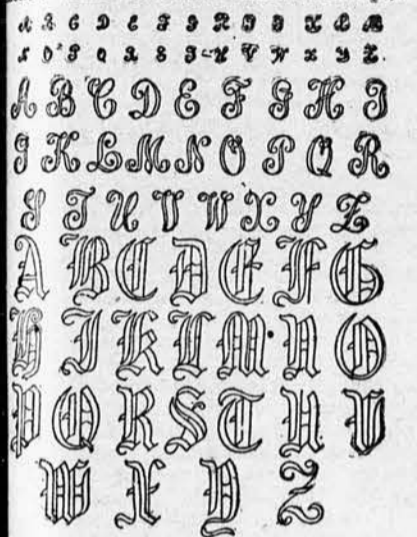 A B C D E F G H I J K L M
N O P Q R S T U V W X Y Z.
A B C D E F G H I
J K L M N O P Q R
S T U V W X Y Z
A B C D E F G
H I K L M N O
P Q R S T U V
W X Y Z